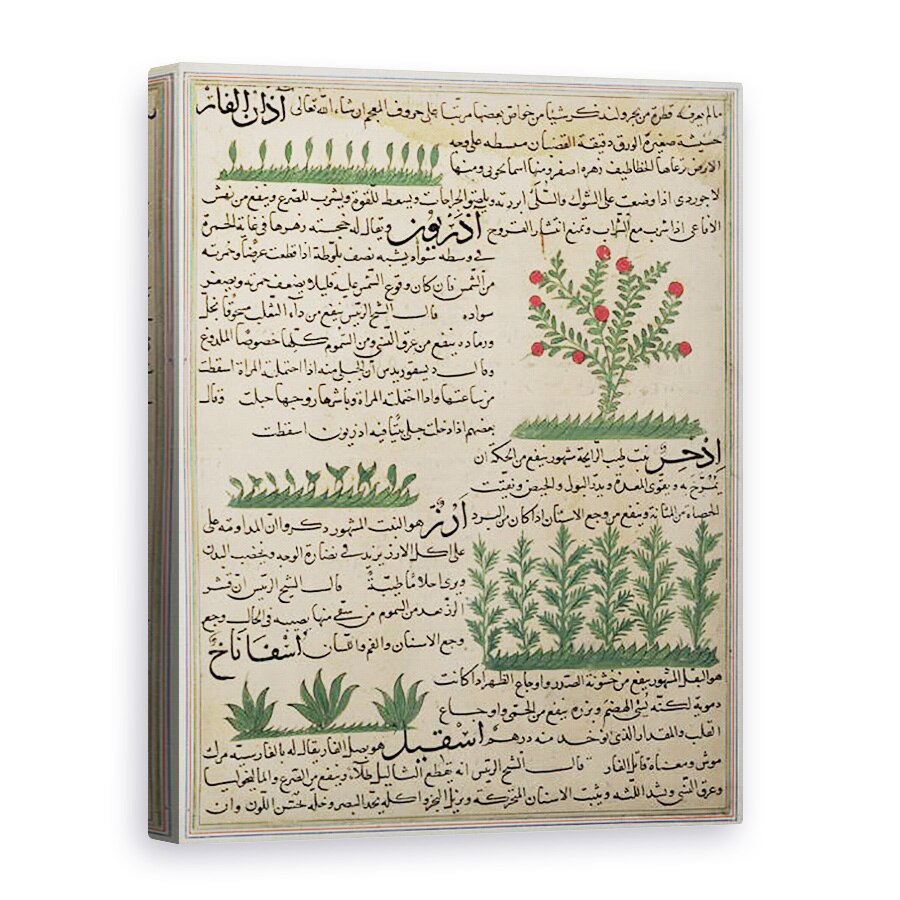 مالم يعرفه قطرة من بحر ولنذكر شيئا من خواص بعضها مرتبا على حروف المعجم ان شاء الله تعالى آذان الفار
حشيشة صغيرة الورق دقيقة القضبان منبسطة على وجه
الارض زعاها الخطاطيف زهره اصفر ومنها اسمانجونى ومنها
لاجوردى اذا وضعت على الشوك والسلى ابرزته ويلصق الجراحات ويسعط للقوة ويشرب للصرع وينفع من نهش
الافاعى اذا شرب مع الشراب وتمنع انتشار القروح اذريون ويقال له خجسته زهرها فى غاية الحمرة
فى وسطه سواد يشبه نصف بلوطة اذا قطعت عرضا وحمرته
من الشمس فان كان وقوع الشمس عليه قليلا يضعف حمرته ويصغر
سواده قال الشيخ الرئيس ينفع من داء الثعلب مسحوقا بخل
ورماده ينفع من عرق النسى ومن السموم كلها خصوصا الملدوغ
وقال ديسقوريدس ان الجبلى منه اذا احتملته المراة اسقطت
من ساعتها واذا احتملته المراة وباشرها زوجها حبلت وقال
بعضهم اذا دخلت حبلى بيتا فيه اذريون اسقطت
اذخر نبت طيب الرايحة مشهور ينفع من الحكة ان
يتمرخ به ويقوى المعدة ويدر البول والحيض ويفتت
الحصاة من المثانة وينفع من وجع الاسنان اذا كان من البرد
ارز هو النبت المشهور ذكروا ان المداومة على
على اكل الارز يزيد فى نضارة الوجه ويخصب البدن
ويرى احلاما طيبة قال الشيخ الرئيس ان قشر
الرز يعد من السموم من سقى منها يصيبه فى الحال وجع
وجع الاسنان والفم واللسان اسفاناخ
هو البقل المشهور ينفع من خشونة الصدر واوجاع الظهر اذا كانت
دموية لكنه يسئ الهضم وبزره ينفع من الحمى واوجاع
القلب والمقدار الذى يوخذ منه درهم اسقيل هو بصل الفار يقال له بالفارسية مرك
موش ومعناه قاتل الفار قال الشيخ الرئيس انه يقطع الثاليل طلاء وينفع من الصرع والمالنخوليا
وعرق النسى ويشد اللثة ويثبت الاسنان المتحركة ويزيل البخر واكله يحد البصر وخله يحسن اللون وان